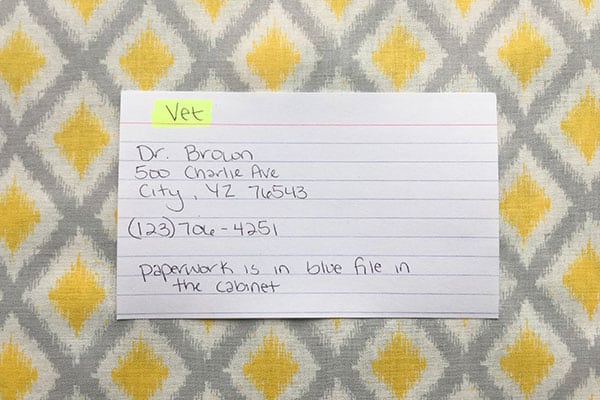 Vet
Dr. Brown
500 Charlie Ave
City, YZ 76543
(123)706-4251
paperwork is in blue file in
the cabinet